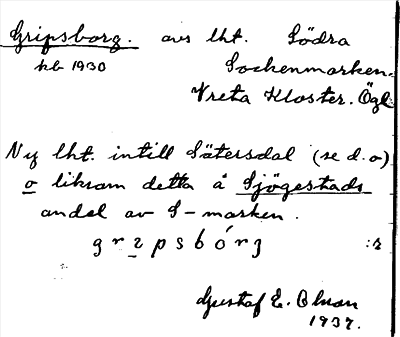 Gripsborg. avs lht. Södra
kb 1930 Sockenmarken.
Vreta Kloster. Ögl.
Ny lht. intill Sätersdal (se d. o)
o liksom detta å Sjögestads
andel av S-marken.
grɪpsbórg :r
Gustaf E. Olson
1937.